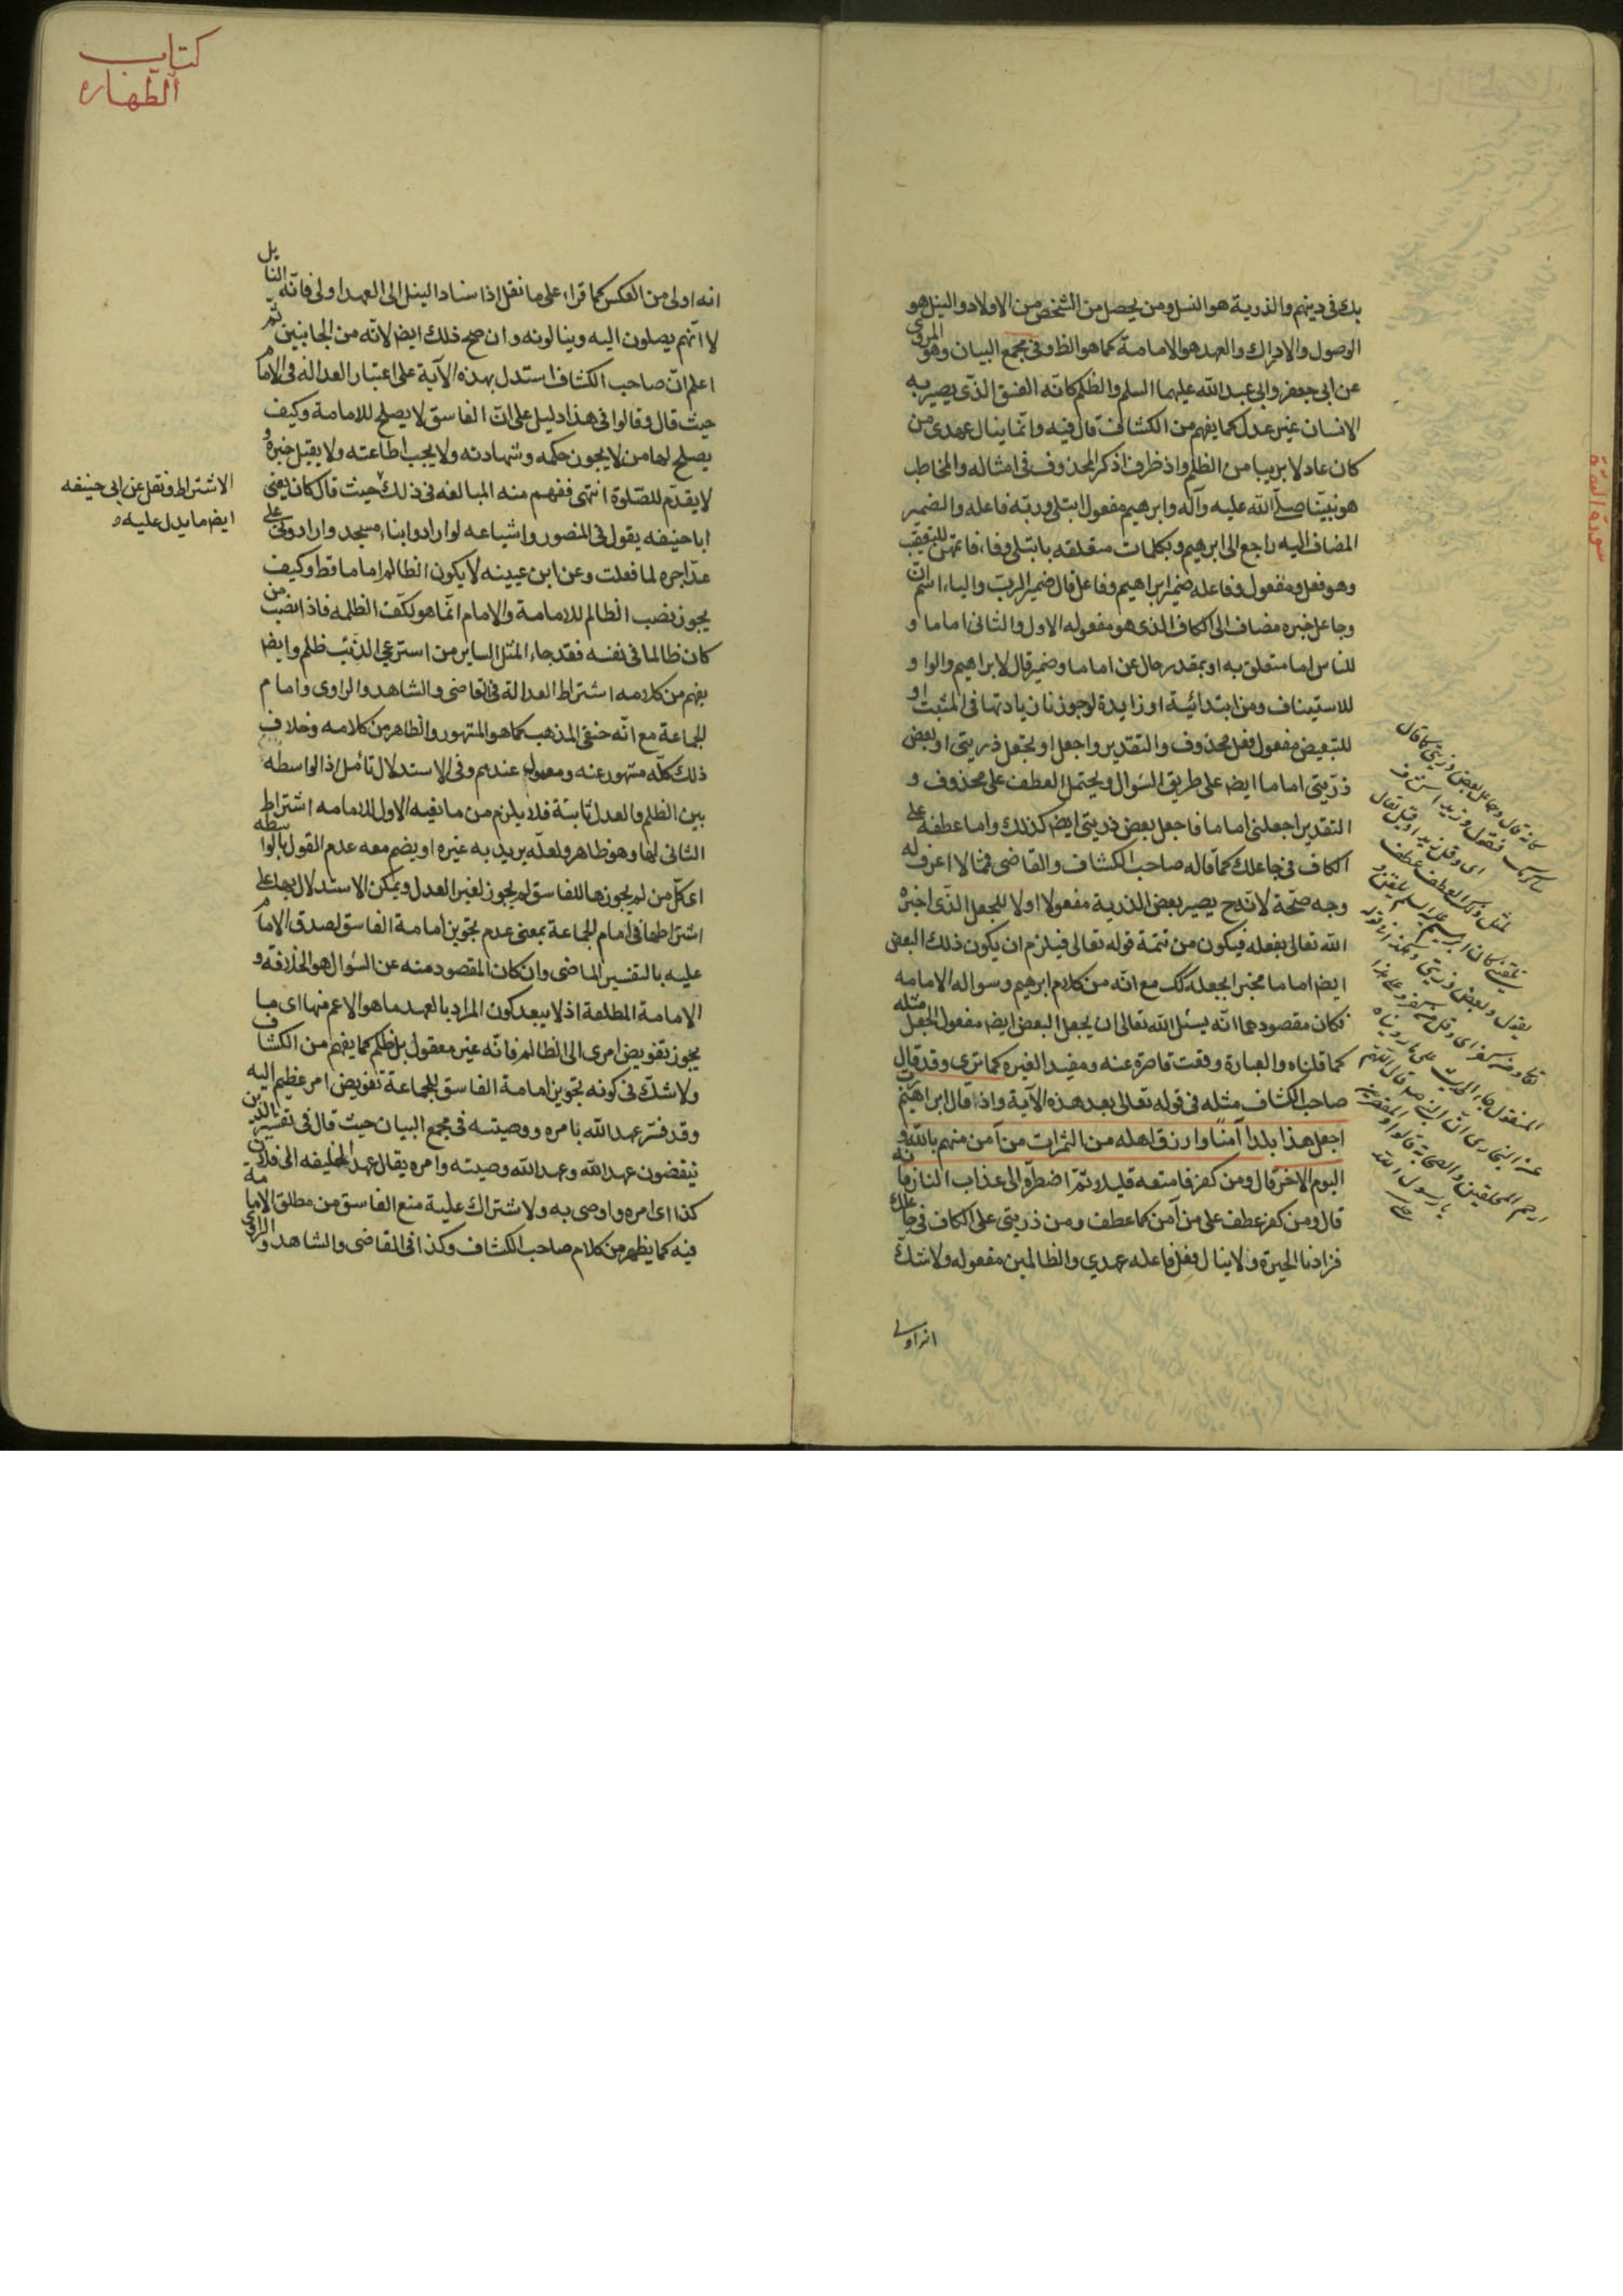 بك في دينهم والذرية هو النسل ومن يحصل من الشخص من الاولاد والنيل هو
الوصول والادراك والعهد هو الامامة كما هو الظ وفي مجمع البيان وهو المروي
عن ابي جعفر وابي عبد الله عليهما السلم والظلم كانه الفسق الذي يصير به
الانسان غير عدل كما يفهم من الكشاف قال فيه وانما ينال عهدي من
كان عادلا بريا من الظلم واذ ظرف اذكر المحذوف في امثاله والمخاطب
هو نبينا صلى الله عليه وآله وابرهيم مفعول ابتلى وربه فاعله والضمير
المضاف اليه راجع الى ابرهيم وبكلمات متعلقه بابتلى وفاء فاتمهن للتعقيب
وهو فعل ومفعول وفاعله ضمير ابراهيم وفاعل قال ضمير الرب والياء اسم ان
وجاعل خبره مضاف الى الكاف الذي هو مفعوله الاول والثاني اماما و
للناس اما متعلق به او بمقدر حال عن اماما وضمير قال لابراهيم والواو
للاستيناف ومن ابتدائية او زايدة لوجوزنا زيادتها في المثبت او
للتبعيض مفعول فعل محذوف والتقدير واجعل او تجعل ذريتي او بعض
ذريتي اماما ايض على طريق السؤال ويحتمل العطف على محذوف و
التقدير اجعلني اماما فاجعل بعض ذريتي ايض كذلك واما عطفه على
الكاف في جاعلك كما قاله صاحب الكشاف والقاضي فمما لا اعرف له
وجه صحة لانه ح يصير بعض الذرية مفعولا اولا للجعل الذي اخبره
الله تعالى بفعله فيكون من تتمة قوله تعالى فيلزم ان يكون ذلك البعض
ايض اماما مخبرا بجعله كك مع انه من كلام ابرهيم وسواله الامامه
فكان مقصودهما انه يسئل الله تعالى ان يجعل البعض ايض مفعول الجعل مثله
كما قلناه والعبارة وقعت قاصرة عنه ومفيد الغيره كما ترى وقد قال
صاحب الكشاف مثله في قوله تعالى بعد هذه الآية واذ قال ابراهيم رب
اجعل هذا بلدا آمنا وارزق اهله من الثمرات من آمن منهم بالله و
اليوم الاخر قال ومن كفر فامتعه قليلا ثم اضطره الى عذاب النار فانه
قال ومن كفر عطف على من آمن كما عطف ومن ذريتي على الكاف في جاعلك
فزادنا الحيرة ولا ينال فعل فاعله عهدي والظالمين مفعوله ولا شك
انه اولى
سورة البقرة
كتاب
الطهارة
انه اولى من العكس كما قراء على ما نقل اذ اسناد النيل الى العهد اولى فانه النايل
لا انهم يصلون اليه وينالونه وان صح ذلك ايض لانه من الجانبين ثم
اعلم ان صاحب الكشاف استدل بهذه الآية على اعتبار العدالة في الامام
حيث قال وقالوا في هذا دليل على ان الفاسق لا يصلح للامامة وكيف
يصلح لها من لا يجوز حكمه وشهادته ولا يجب اطاعته ولا يقبل خبره و
لا يقدم للصلوة انتهى ففهم منه المبالغه في ذلك حيث قال كان يعني
ابا حنيفه يقول في المنصور واشياعه لو ارادوا بناء مسجد وارادوني على
عد آجره لما فعلت وعن ابن عيينه لا يكون الظالم اماما قط وكيف
يجوز نصب الظالم للامامة والامام انما هو لكف الظلمه فاذا نصب من
كان ظالما في نفسه فقد جاء المثل الساير من استرعي الذئب ظلم وايض
يفهم من كلامه اشتراط العدالة في القاضي والشاهد والراوي وامام
الجماعة مع انه حنفي المذهب كما هو المشهور والظاهر من كلامه وخلاف
ذلك كله مشهور عنه ومعمول عندهم وفي الاستدلال تأمل اذ الواسطه
بين الظلم والعدل ثابتة فلا يلزم من مانعيه الاول للامامه اشتراط
الثاني لها وهو ظاهر ولعله يريد به غيره او يضم معه عدم القول بالواسطه
اي كل من لم يجوزها للفاسق لم يجوز لغير العدل ويمكن الاستدلال بها على
اشتراطها في امام الجماعة بمعنى عدم تجويز امامة الفاسق لصدق الامام
عليه بالتفسير الماضي وان كان المقصود منه عن السؤال هو الخلافه و
الامامة المطلقة اذ لا يبعد كون المراد بالعهد ما هو الاعم منها اي ما
يجوز تفويض امري الى الظالم فانه غير معقول بل ظلم كما يفهم من الكشاف
ولا شك في كونه تجويز امامة الفاسق للجماعة تفويض امر عظيم اليه
وقد فسر عهد الله بامره ووصيته في مجمع البيان حيث قال في تفسير الذين
ينقضون عهد الله وعهد الله وصيته وامره يقال عهد الخليفه الى فلان
كذا اي امره واوصى به ولاشتراك علية منع الفاسق من مطلق الامامة
فيه كما يظهر من كلام صاحب الكشاف وكذا في القاضي والشاهد والراوي
الاشتراط ونقل عن ابي حنيفه
ايض ما يدل عليه